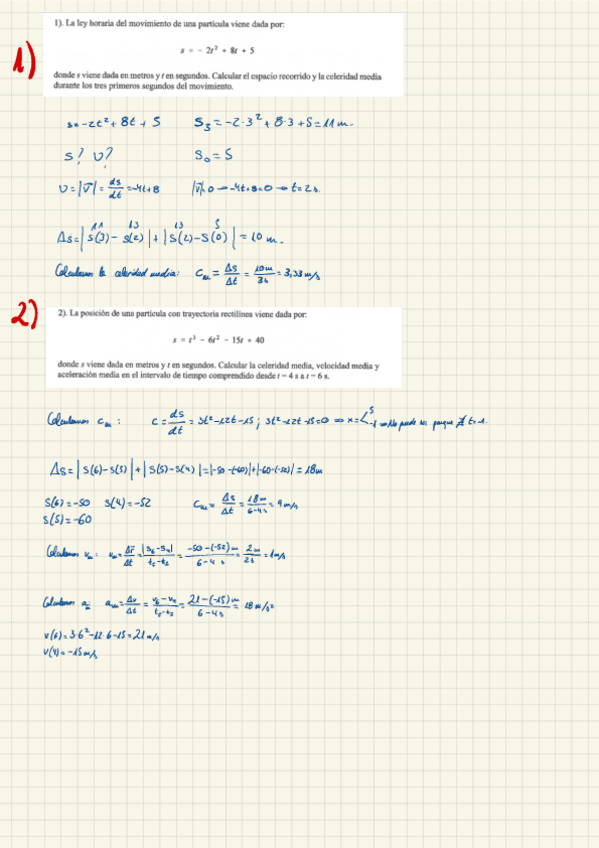 1)
1). La ley horaria del movimiento de una partícula viene dada por:
s = - 2t² + 8t + 5
donde s viene dada en metros y t en segundos. Calcular el espacio recorrido y la celeridad media
durante los tres primeros segundos del movimiento.
s=-2t²+8t+5 S₃=-2·3²+8·3+5=11m.
S? v? S₀=5
v=|v⃗|=ds/dt=-4t+8 |v⃗|=0→-4t+8=0→t=2s.
11 13 13 5
Δs=|s(3)-s(2)|+|s(2)-s(0)|=10m.
Calculamos la celeridad media: Cₘ=Δs/Δt=10m/3s=3,33m/s
2)
2). La posición de una partícula con trayectoria rectilínea viene dada por:
s = t³ - 6t² - 15t + 40
donde s viene dada en metros y t en segundos. Calcular la celeridad media, velocidad media y
aceleración media en el intervalo de tiempo comprendido desde t = 4 s a t = 6 s.
Calculamos cₘ: c=ds/dt=3t²-12t-15; 3t²-12t-15=0 ⇒ x= 5 -1 ⇒ No puede ser porque ∄ t=-1.
Δs=|s(6)-s(5)|+|s(5)-s(4)|=|-50-(-60)|+|-60-(-52)|=18m
S(6)=-50 s(4)=-52 Cₘ=Δs/Δt=18m/6-4s=9m/s
s(5)=-60
Calculamos vₘ: vₘ=Δr⃗/Δt=|s₆-s₄|/=-50-(-52)m/6-4s=2m/2s=1m/s
Calculamos a: aₘ=Δv/Δt=v₆-v₄/=21-(-15)m/6-4s=18m/s²
v(6)=3·6²-12·6-15=21m/s
v(4)=-15m/s